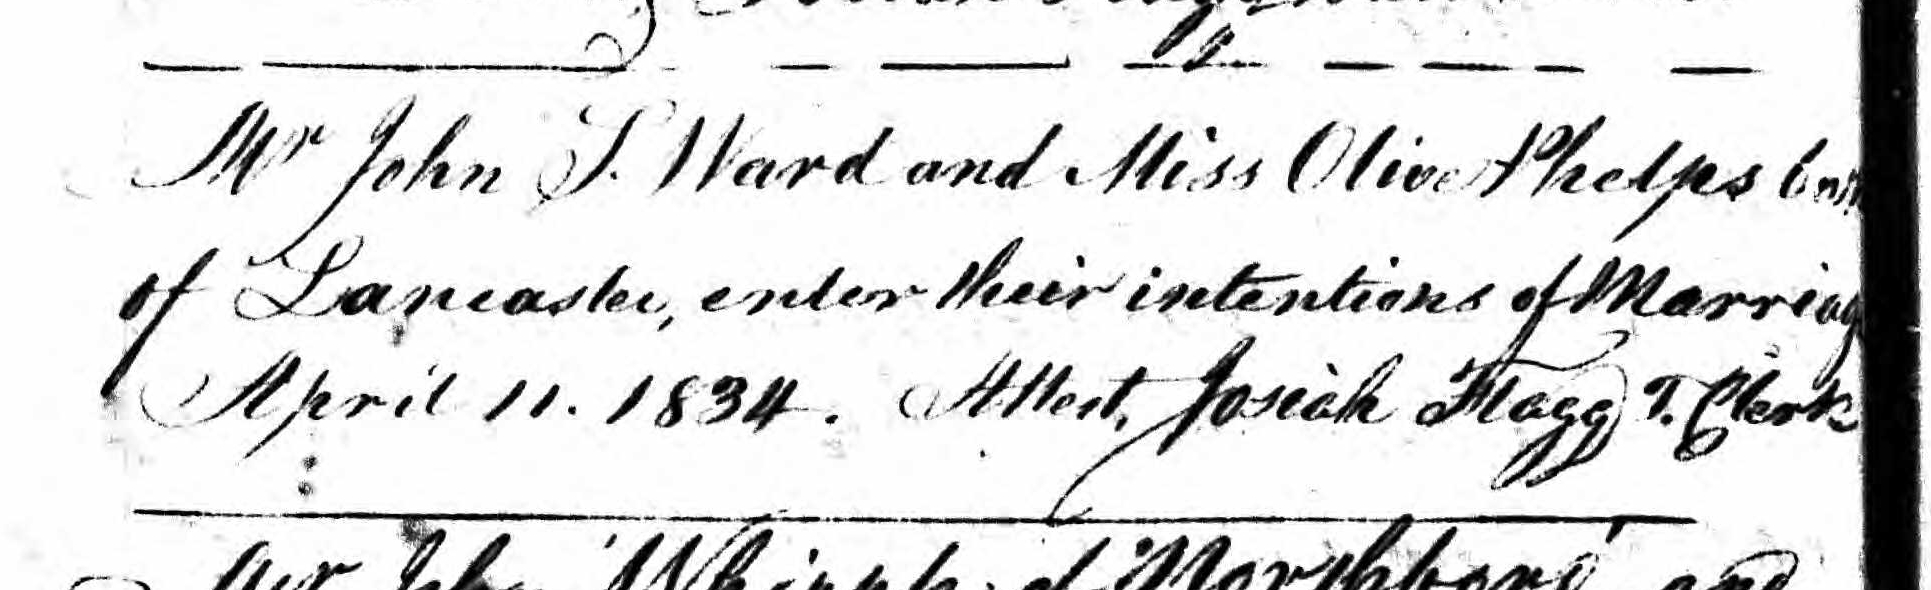 Mr John S. Ward and Miss Olive Phelps both
of Lancaster, enter their intentions of Marriag
April 11. 1834. Attest, Josiah Flagg T. Clerk
Mr John Whipple of Marshboro' and